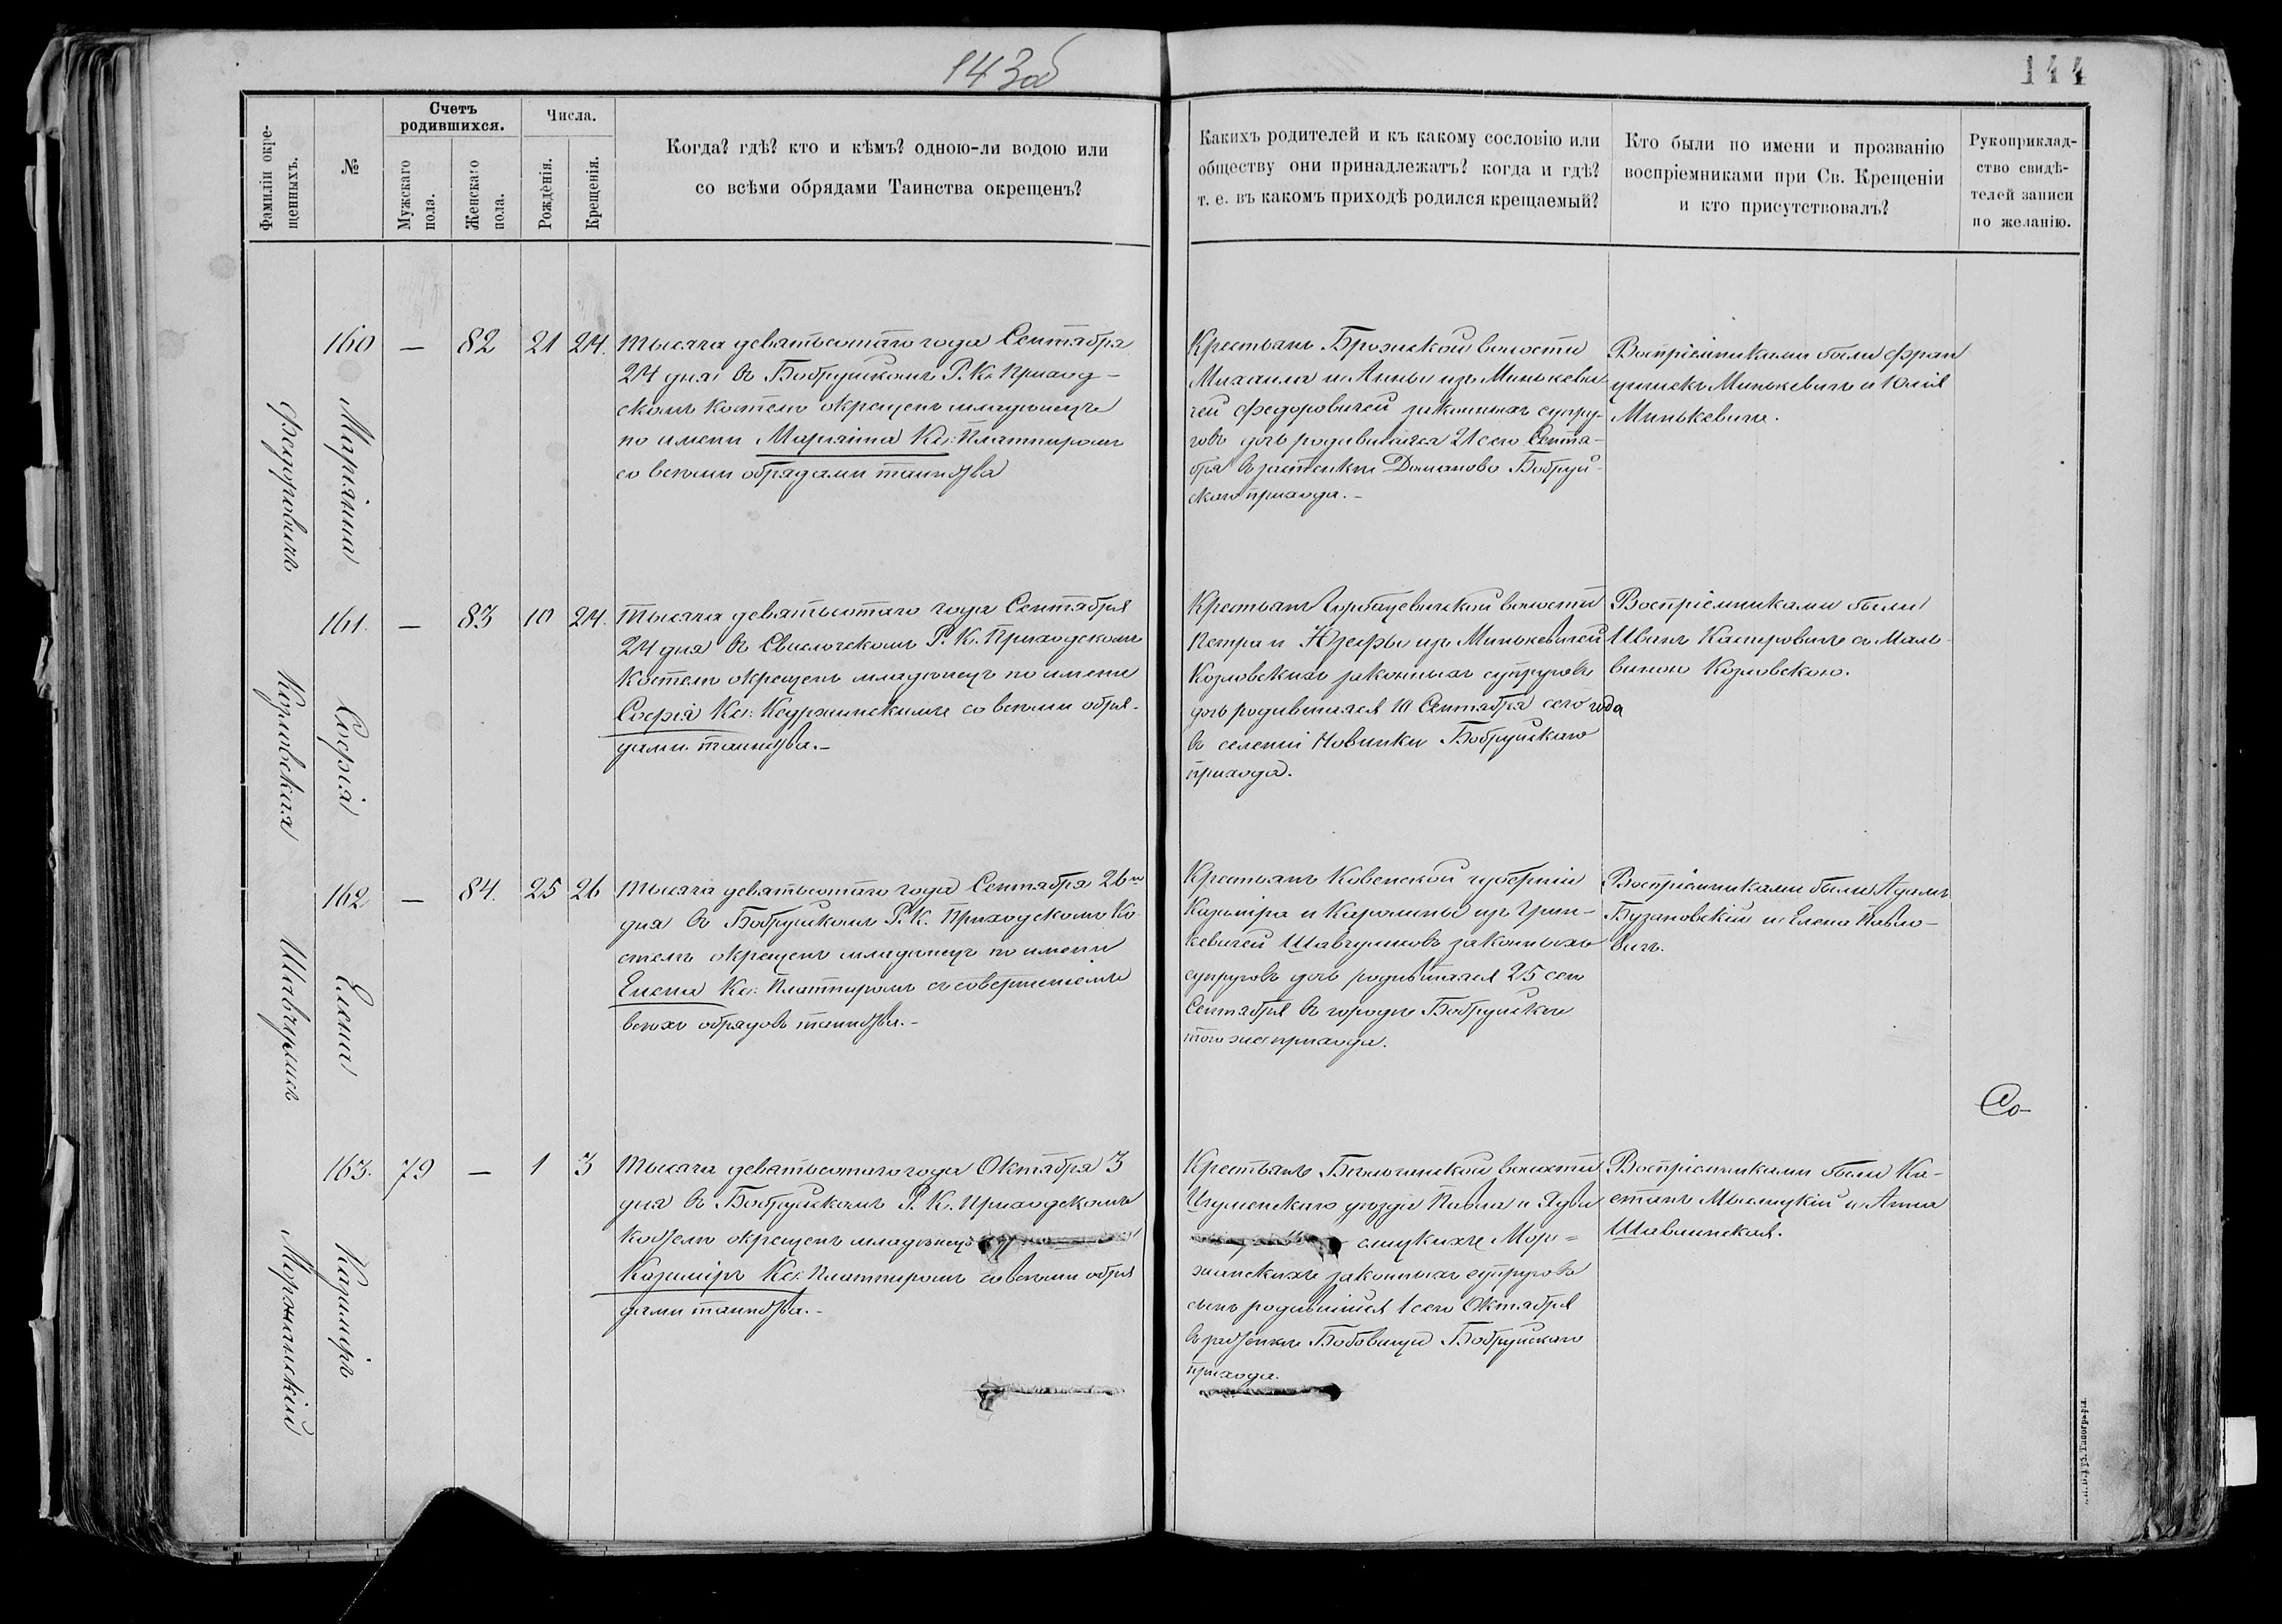 143об
144
Фамиліи окре-
щенныхъ.
№
Счетъ
родившихся.
Мужскаго
пола.
Женскаго
пола.
Числа.
Рожденія.
Крещенія.
Когда? гдѣ? кто и кѣмъ? одною-ли водою или
со всѣми обрядами Таинства окрещенъ?
Какихъ родителей и къ какому сословію или
обществу они принадлежатъ? когда и гдѣ?
т. е. въ какомъ приходѣ родился крещаемый?
Кто были по имени и прозванію
воспріемниками при Св. Крещеніи
и кто присутствовалъ?
Рукоприклад-
ство свидѣ-
телей записи
по желанію.
Федоровичъ
Маріянна
160 — 82 21 24.
Тысяча девятьсотаго года Сентября
24 дня въ Бобруйскомъ Р. К. Приход-
скомъ костелѣ окрещенъ младенецъ
по имени Маріянна Кс: Платпиромъ
со всѣми обрядами таинства
Крестьянъ Брожской волости
Михаила и Анны изъ Минькеви-
чей Федоровичей законныхъ супру-
говъ дочь родившаяся 21 сего Сентя-
бря въ застѣнкѣ Доманово Бобруй-
скаго прихода. -
Воспріемниками были Фран
цишекъ Минькевичъ и Юлія
Минькевичъ.
Козловская
Софія
161. — 83 10 24.
Тысяча девятьсотаго года Сентября
24 дня въ Свислочскомъ Р. К. Приходскомъ
Костелѣ окрещенъ младенецъ по имени
Софія Кс: Кедржинскимъ со всѣми обря-
дами таинства. -
Крестьянъ Горбацевичской волости
Петра и Юзефы изъ Минькевичей
Козловскихъ законныхъ супруговъ
дочь родившаяся 10 Сентября сего года
въ селеніи Новинки Бобруйскаго
прихода.
Воспріемниками были
Иванъ Касперовичъ съ Маль-
виною Козловскою.
Шавгулисъ
Елена
162 — 84. 25 26
Тысяча девятьсотаго года Сентября 26го
дня въ Бобруйскомъ Р. К. Приходскомъ Ко
стелѣ окрещенъ младенецъ по имени
Елена Кс: Платпиромъ съ совершеніемъ
всѣхъ обрядовъ таинства. -
Крестьянъ Ковенской губерніи
Казиміра и Каролины изъ Грин-
кевичей Шавгулисовъ законныхъ
супруговъ дочь родившаяся 25 сего
Сентября въ городѣ Бобруйскѣ
того же прихода.
Воспріемниками были Адамъ
Бузановскій и Елена Павло-
вичъ.
Со-
Моржанскій
Казиміръ
163. 79 — 1 3
Тысяча девятьсотаго года Октября 3
дня въ Бобруйскомъ Р. К. Приходскомъ
Костелѣ окрещенъ младенецъ
Казиміръ Кс: Платпиромъ со всѣми обря
дами таинства. -
Крестьянъ Бѣличинской волости
Игуменскаго уѣзда Павла и Ядви
слицкихъ Мор-
жанскихъ законныхъ супруговъ
сынъ родившійся 1 сего Октября
въ застѣнкѣ Бобовище Бобруйскаго
прихода.
Воспріемниками были Ка-
етанъ Мыслицкій и Анна
Шавлинская.